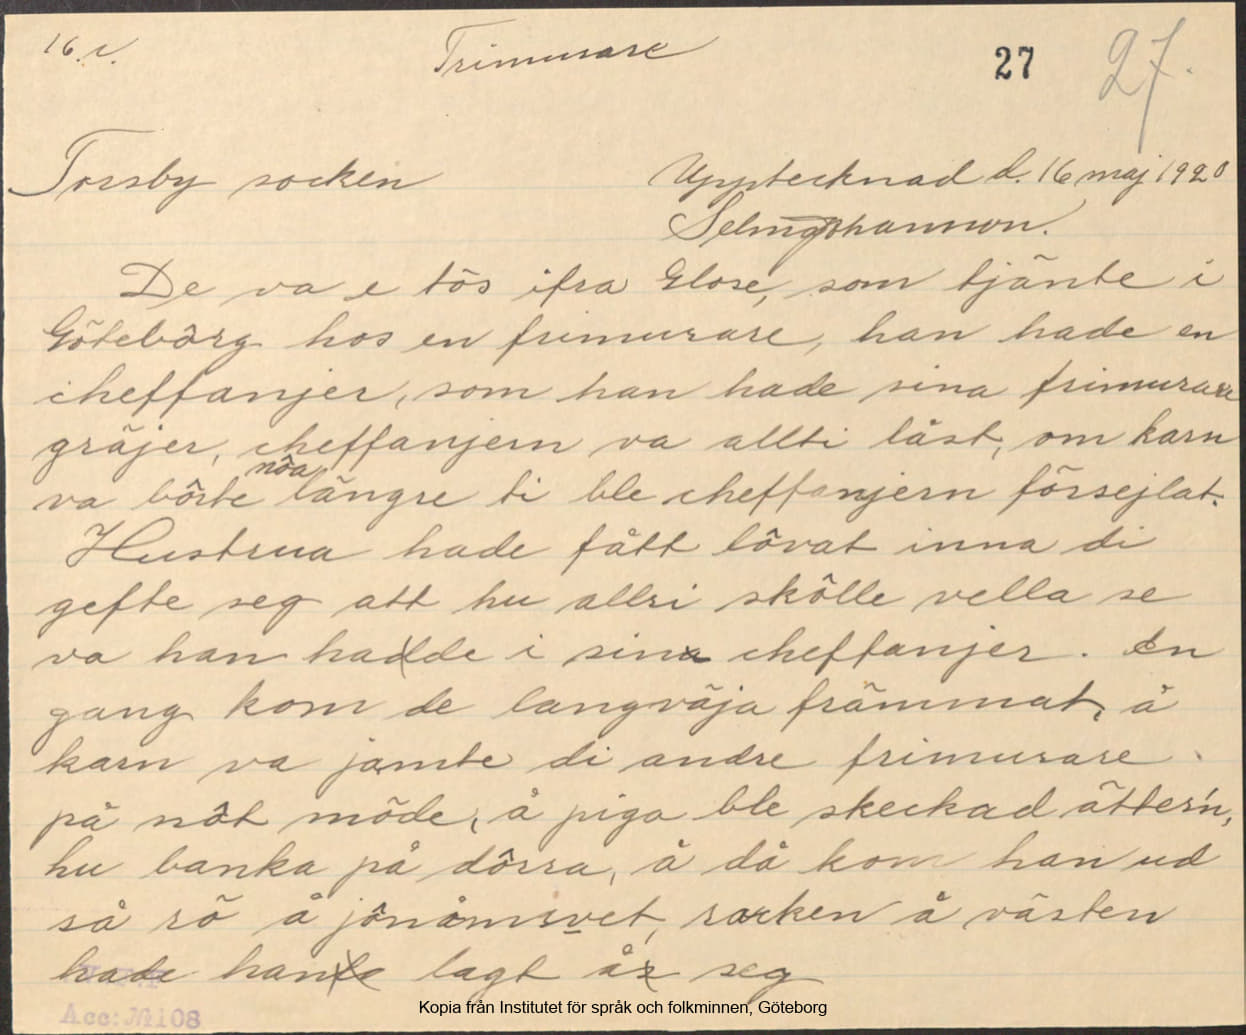 16.c. Frimurare 27 27.
Torsby socken Upptecknad d. 16 maj 1920
Selmajohannson.
De va e tös ifra Glose, som tjänte i
Götebôrg hos en frimurare, han hade en
cheffanjer, som han hade sina frimurare
gräjer, cheffanjern va allti låst, om karn
va bôrte nôa längre ti ble cheffanjern försejlat.
Hustrua hade fått lôvat inna di
gefte seg att hu allri skôlle vella se
va han hadde i sina cheffanjer. En
gang kom de langväja främmat, å
karn va jamte di andre frimurare
på nôt möde, å piga ble skeckad ätter'n,
hu banka på dôrra, å då kom han ud
så rö å jônåmsvet, rocken å västen
hade han lagt å seg
Acc: № 108
Kopia från Institutet för språk och folkminnen, Göteborg